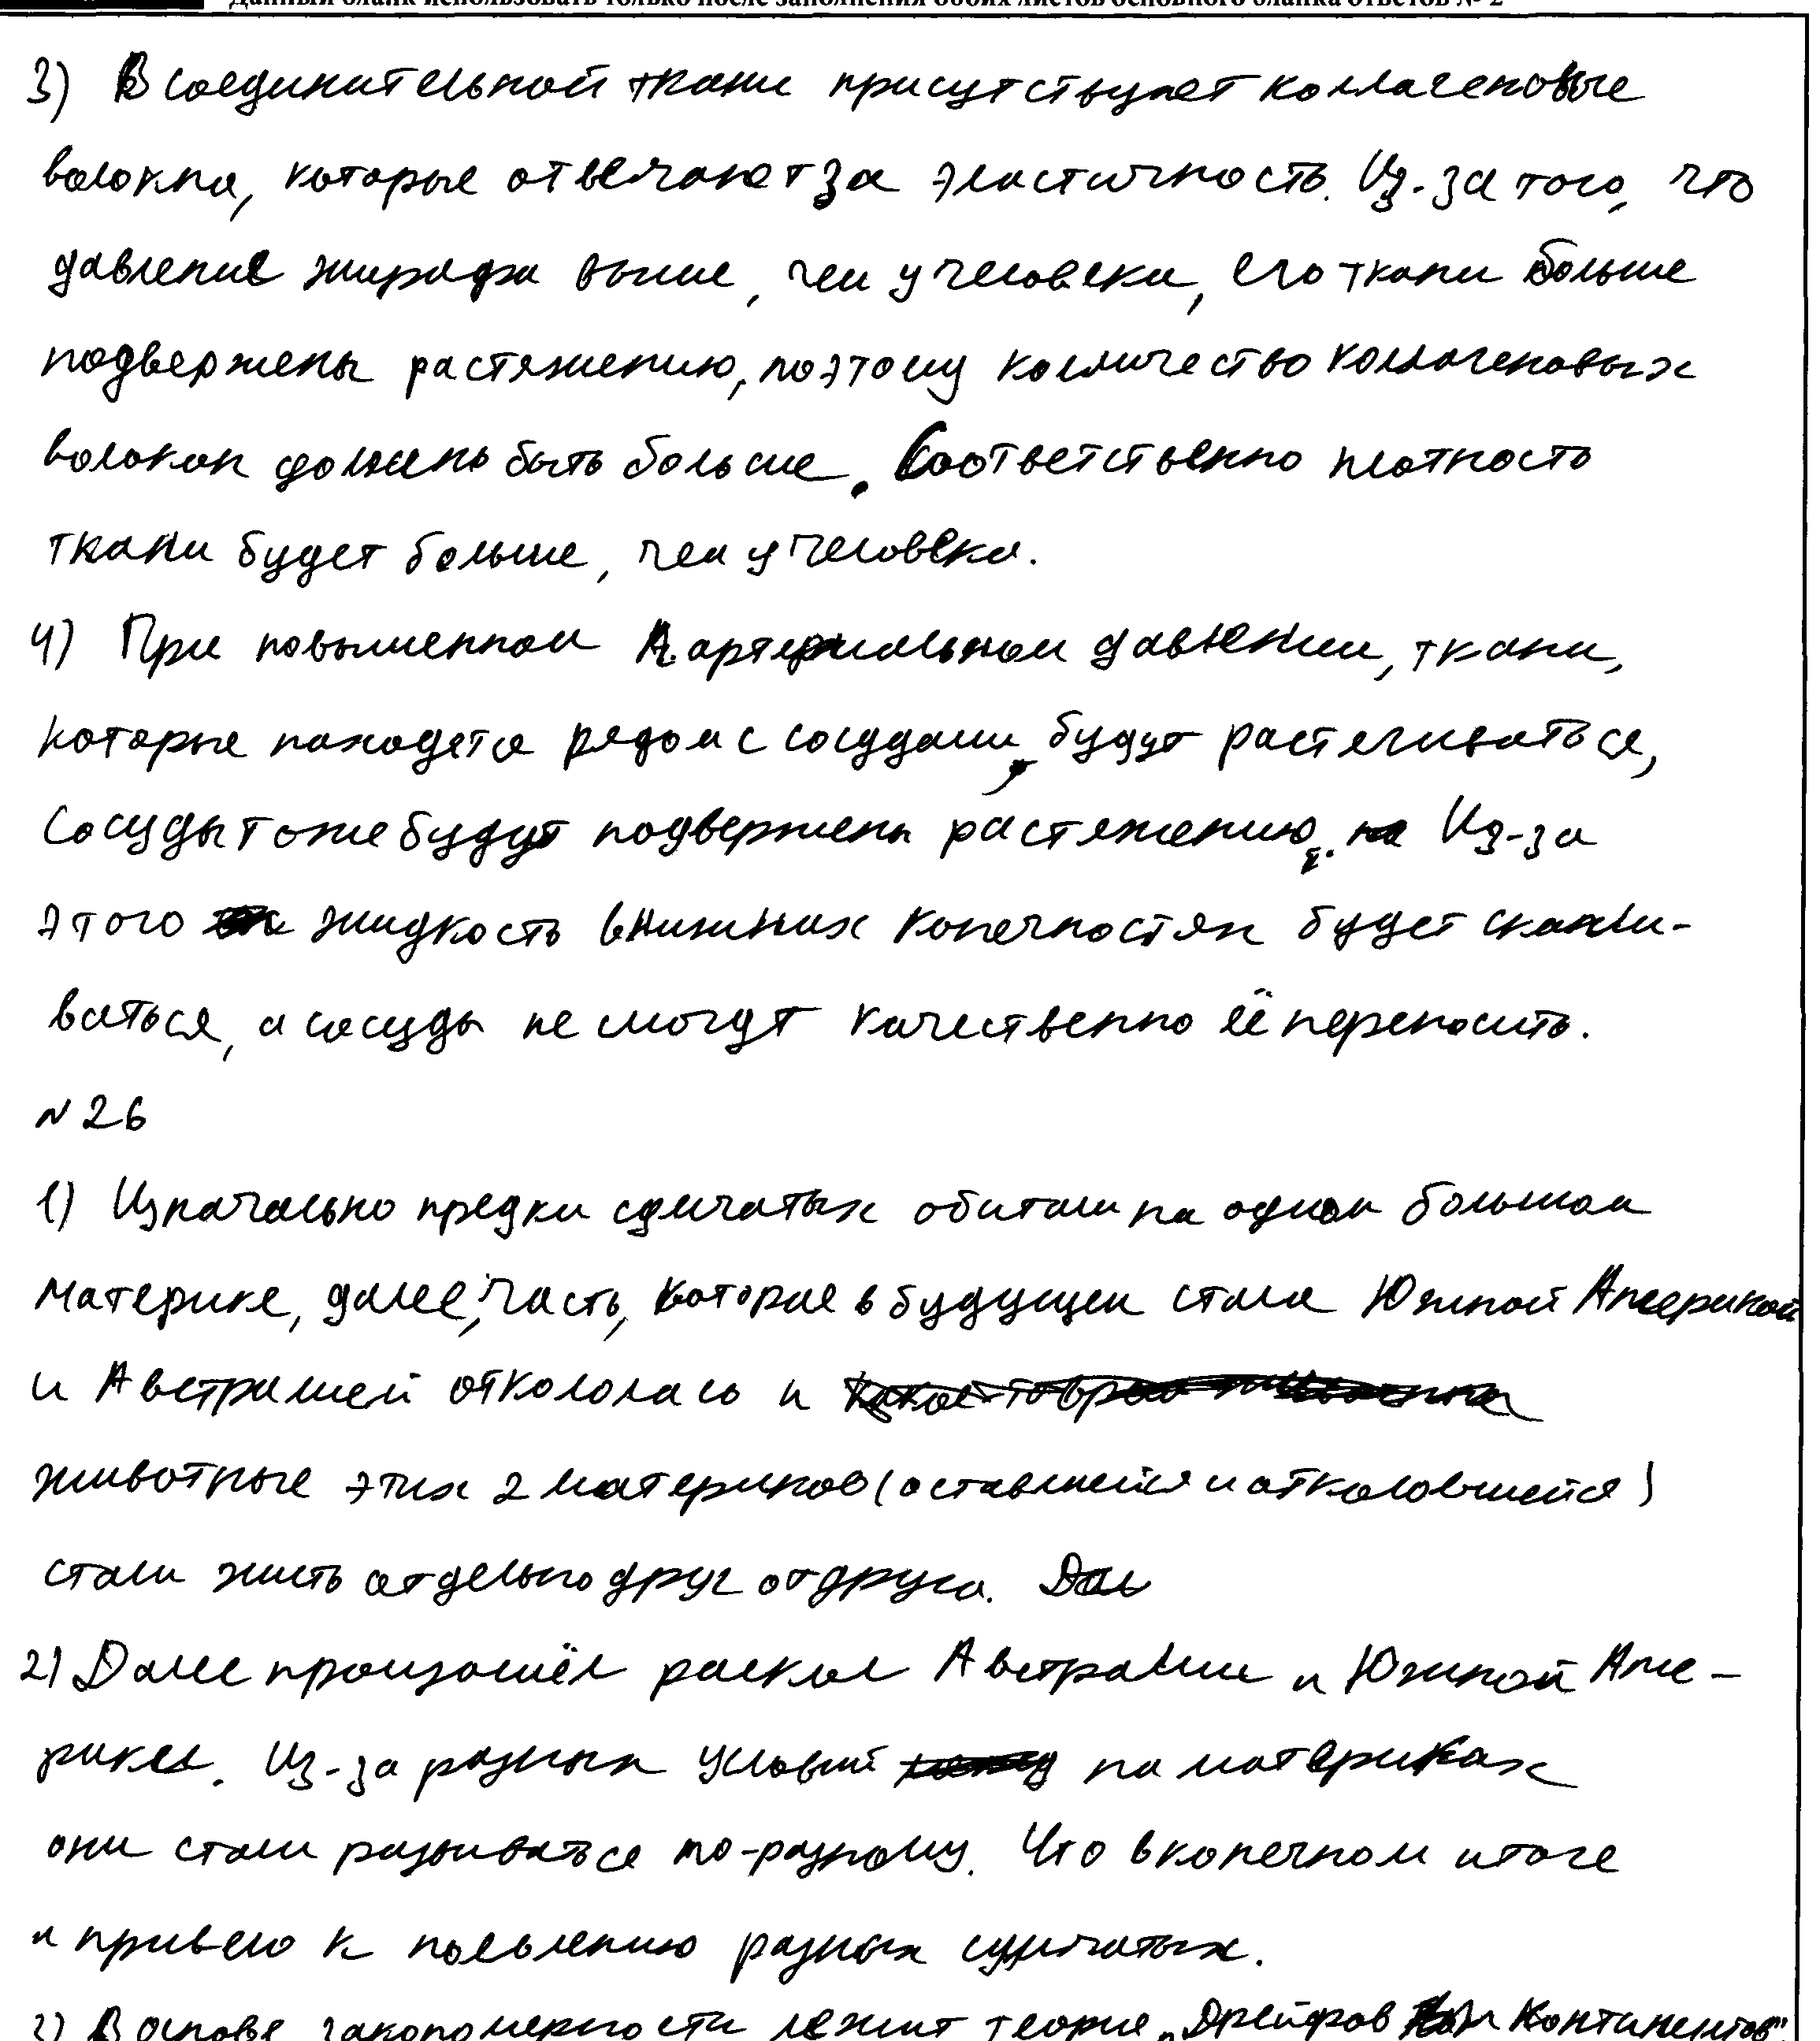 Данный бланк использовать только после заполнения обоих листов основного бланка ответов № 2
3) В соединительной ткани присутствует коллагеновые
волокна, которые отвечают за эластичность. Из-за того, что
давление жирафа выше, чем у человека, его ткани больше
подвержены растяжению, поэтому колличество коллагеновых
волокон должно быть больше. Соответственно плотность
ткани будет больше, чем у человека.
4) При повышенном артериальном давлении, ткани,
которые находятся рядом с сосудами, будут растягиваться,
сосуды тоже будут подвержены растяжению. Из-за
этого жидкость в нижних конечностях будет скапли-
ваться, а сосуды не могут качественно её переносить.
№ 26
1) Изначально предки сумчатых обитали на одном большом
материке, далее, часть, которая в будущем стала Южной Америкой
и Австралией откололась и
животные этих 2 материков (оставшейся и отколовшейся)
стали жить отдельно друг от друга. Дал
2) Далее произошёл раскол Австралии и Южной Аме-
рики. Из-за разных условий на материках
они стали развиваться по-разному. Что в конечном итоге
и привело к появлению разных сумчатых.
3) В основе закономерности лежит теория „Дрейфов Континентов".